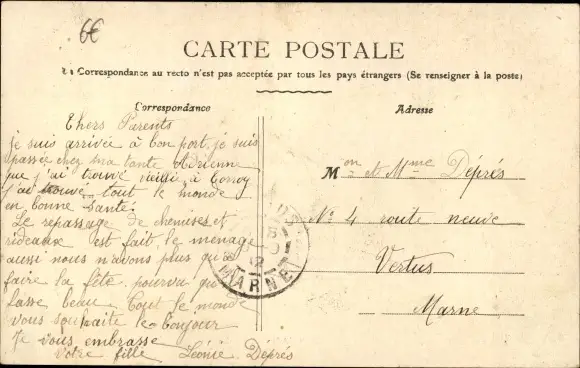 6€
CARTE POSTALE
La Correspondance au recto n'est pas acceptée par tous les pays étrangers (Se renseigner à la poste)
Correspondance
Chers Parents
je suis arrivée à bon port. je suis
passée chez ma tante Adrienne
que j'ai trouvé vieillie à
j'ai trouvé tout le monde
en bonne santé.
Le repassage de chemises et
rideaux est fait le ménage
aussi nous n'avons plus qu'à
faire la fête pourvu qu'il
fasse beau. Tout le monde
vous souhaite le bonjour
Je vous embrasse
Votre fille Léonie Déprés
Adresse
Mon et Mme Déprés
No 4 route neuve
Vertus
Marne
MARNE